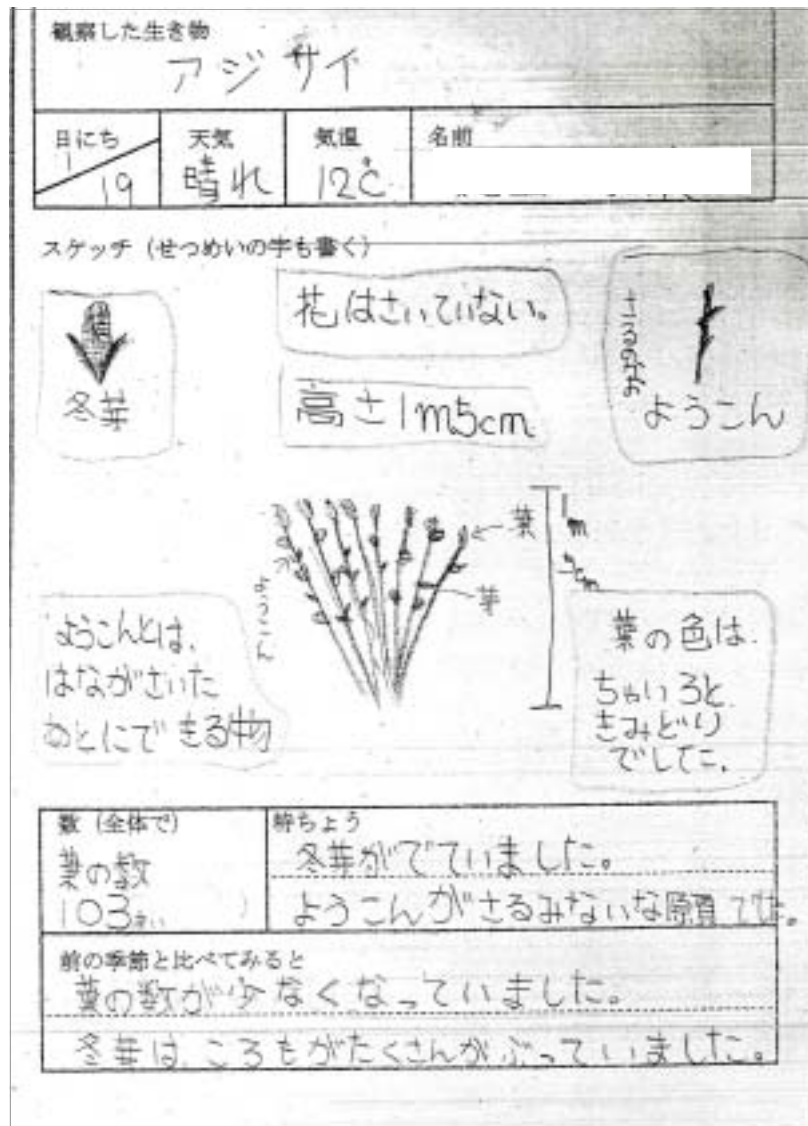 観察した生き物
アジサイ
日にち
1/19
天気
晴れ
気温
12℃
名前
スケッチ（せつめいの字も書く）
冬芽
花はさいていない。
高さ1m5cm
さるのかお
ようこん
ようこん
葉
芽
1m
5cm
ようこんとは、
はながさいた
あとにできる物
葉の色は
ちゃいろと
きみどり
でした。
数（全体で）
葉の数
103まい
特ちょう
冬芽がでていました。
ようこんがさるみないな顔でした。
前の季節と比べてみると
葉の数が少なくなっていました。
冬芽は、ころもがたくさんかぶっていました。